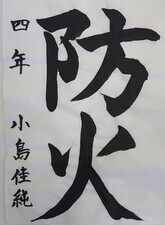 防火
四年 小島佳純